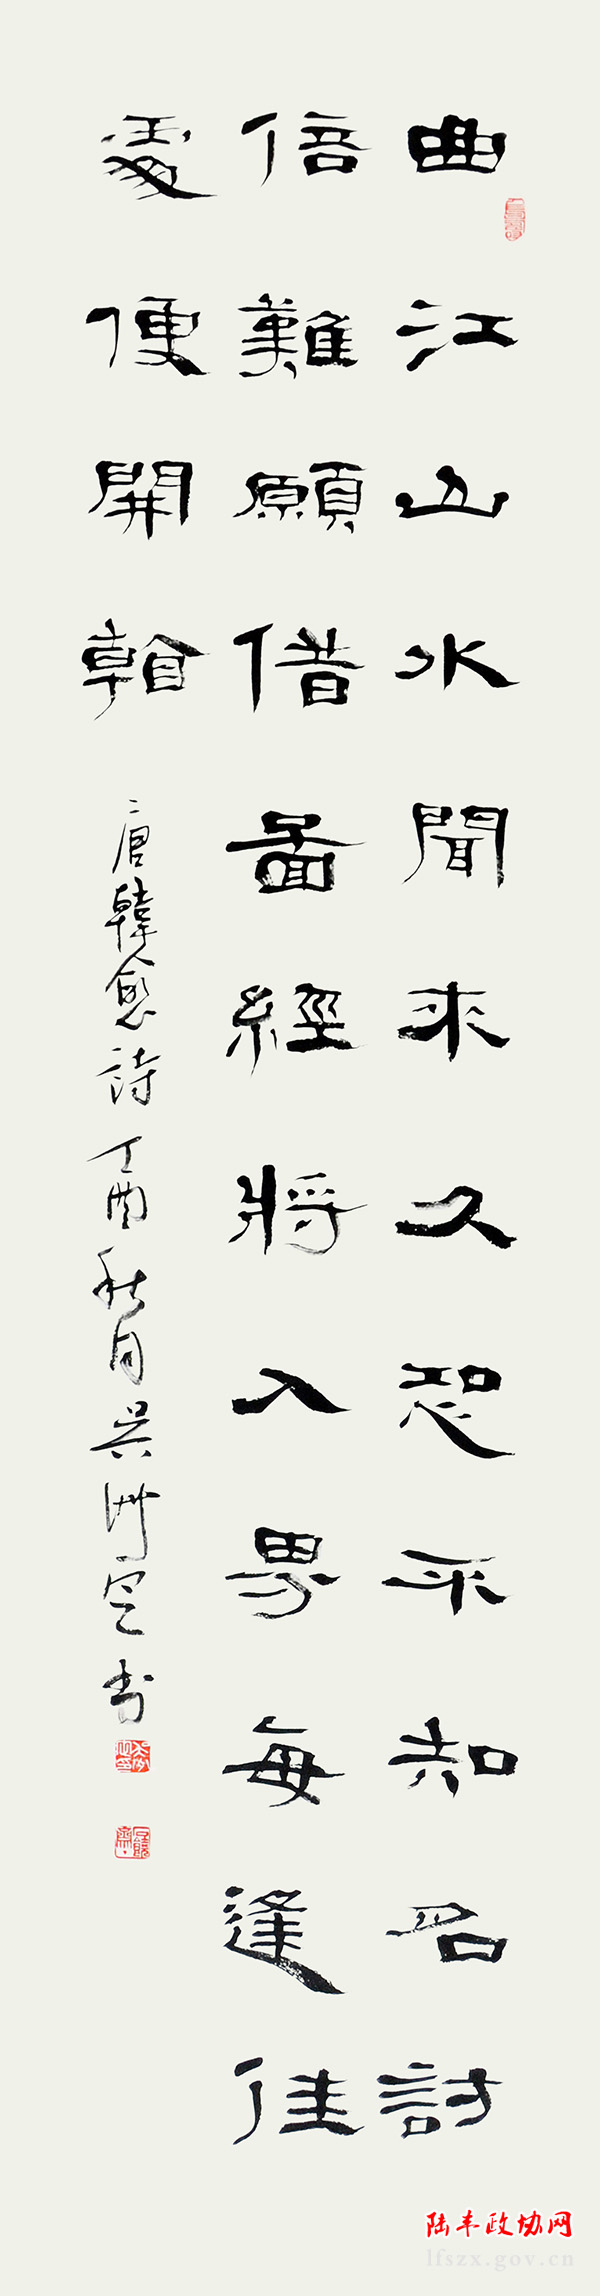 曲江山水聞來久恐不知名訪
倍難願借啚經將入界每逢佳
處便開看
唐韓愈詩丁酉秋月吳書
陆丰政协网
lfszx.gov.cn